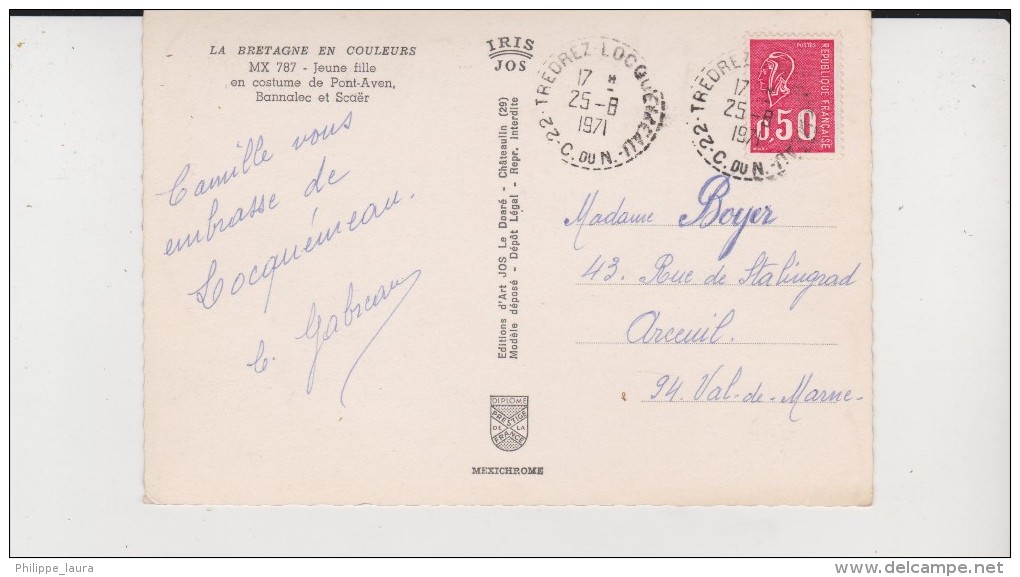 LA BRETAGNE EN COULEURS
MX 787 - Jeune fille
en costume de Pont-Aven,
Bannalec et Scaër
Camille vous
embrasse de
Locquémeau.
C. Gabreau
IRIS
JOS
Editions d'Art JOS Le Doaré - Châteaulin (29)
Modèle déposé - Dépôt Légal - Repr. Interdite
DIPLOME
PRESTIGE
DE LA
FRANCE
MEXICHROME
22 - TREDREZ-LOCQUEMEAU - C. DU N.
17 H
25-8
1971
22 - TREDREZ
17
25 8
1971
C. DU N.
POSTES
REPUBLIQUE FRANÇAISE
0,50
Madame Boyer
43. Rue de Stalingrad
Arceuil.
94. Val-de-Marne-
Philippe_laura
delcampe.net